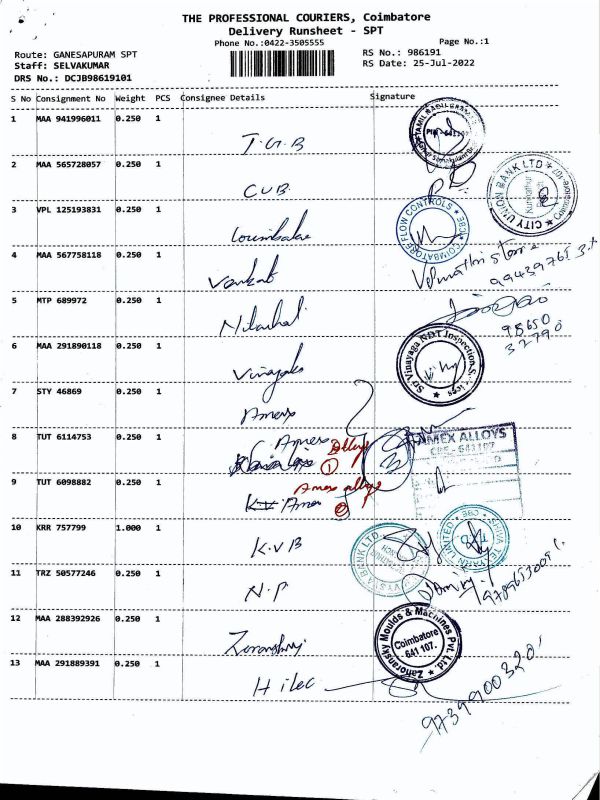 THE PROFESSIONAL COURIERS, Coimbatore
Delivery Runsheet - SPT
Phone No.:0422-3505555
Page No.:1
Route: GANESAPURAM SPT
RS No.: 986191
Staff: SELVAKUMAR
RS Date: 25-Jul-2022
DRS No.: DCJB98619101
S No Consignment No Weight PCS Consignee Details Signature
1 MAA 941996011 0.250 1
T.G.B
2 MAA 565728057 0.250 1
CUB
CITY UNION BANK LTD
3 VPL 125193831 0.250 1
COIMBATORE FLOW CONTROLS
4 MAA 567758118 0.250 1
Venkat
5 MTP 689972 0.250 1
98650
32790
6 MAA 291890118 0.250 1
Sri Vinayaga NDT Inspection Services
7 STY 46869 0.250 1
Amex
8 TUT 6114753 0.250 1
Amex Alloys
1
3
AMEX ALLOYS
CBE - 641 107
9 TUT 6098882 0.250 1
Amex alloys
2
Amex
10 KRR 757799 1.000 1
K.V.B
VYSYA BANK LTD
11 TRZ 50577246 0.250 1
N.P
12 MAA 288392926 0.250 1
Zahoransky Moulds & Machines Pvt. Ltd.
Coimbatore
641 107.
13 MAA 291889391 0.250 1
Hitec
9739900320